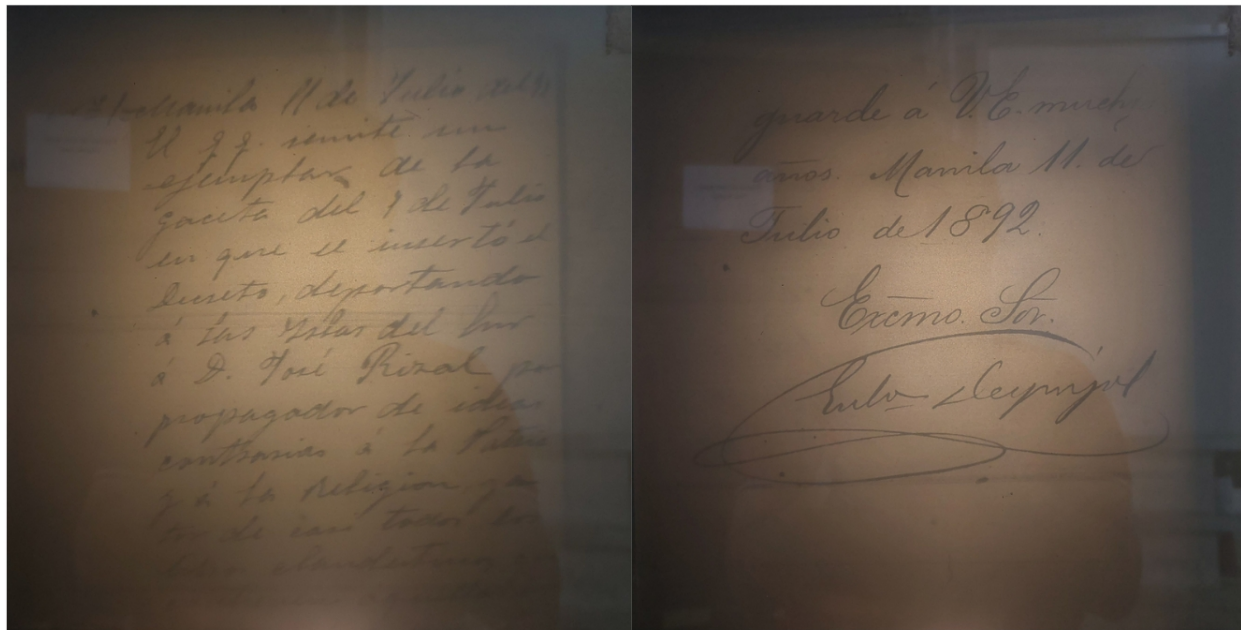 Manila 11 de Julio del
El G. G. remite un
ejemplar de la
gaceta del 7 de Julio
en que se insertó el
decreto, deportando
á las Yslas del Sur
á D. José Rizal
propagador de ideas
contrarias á la Patria
y á la religion
de casi todos los
clandestinos
guarde á V. E. muchos
años. Manila 11. de
Julio de 1892.
Excmo. Sor.
Eulo Despujol